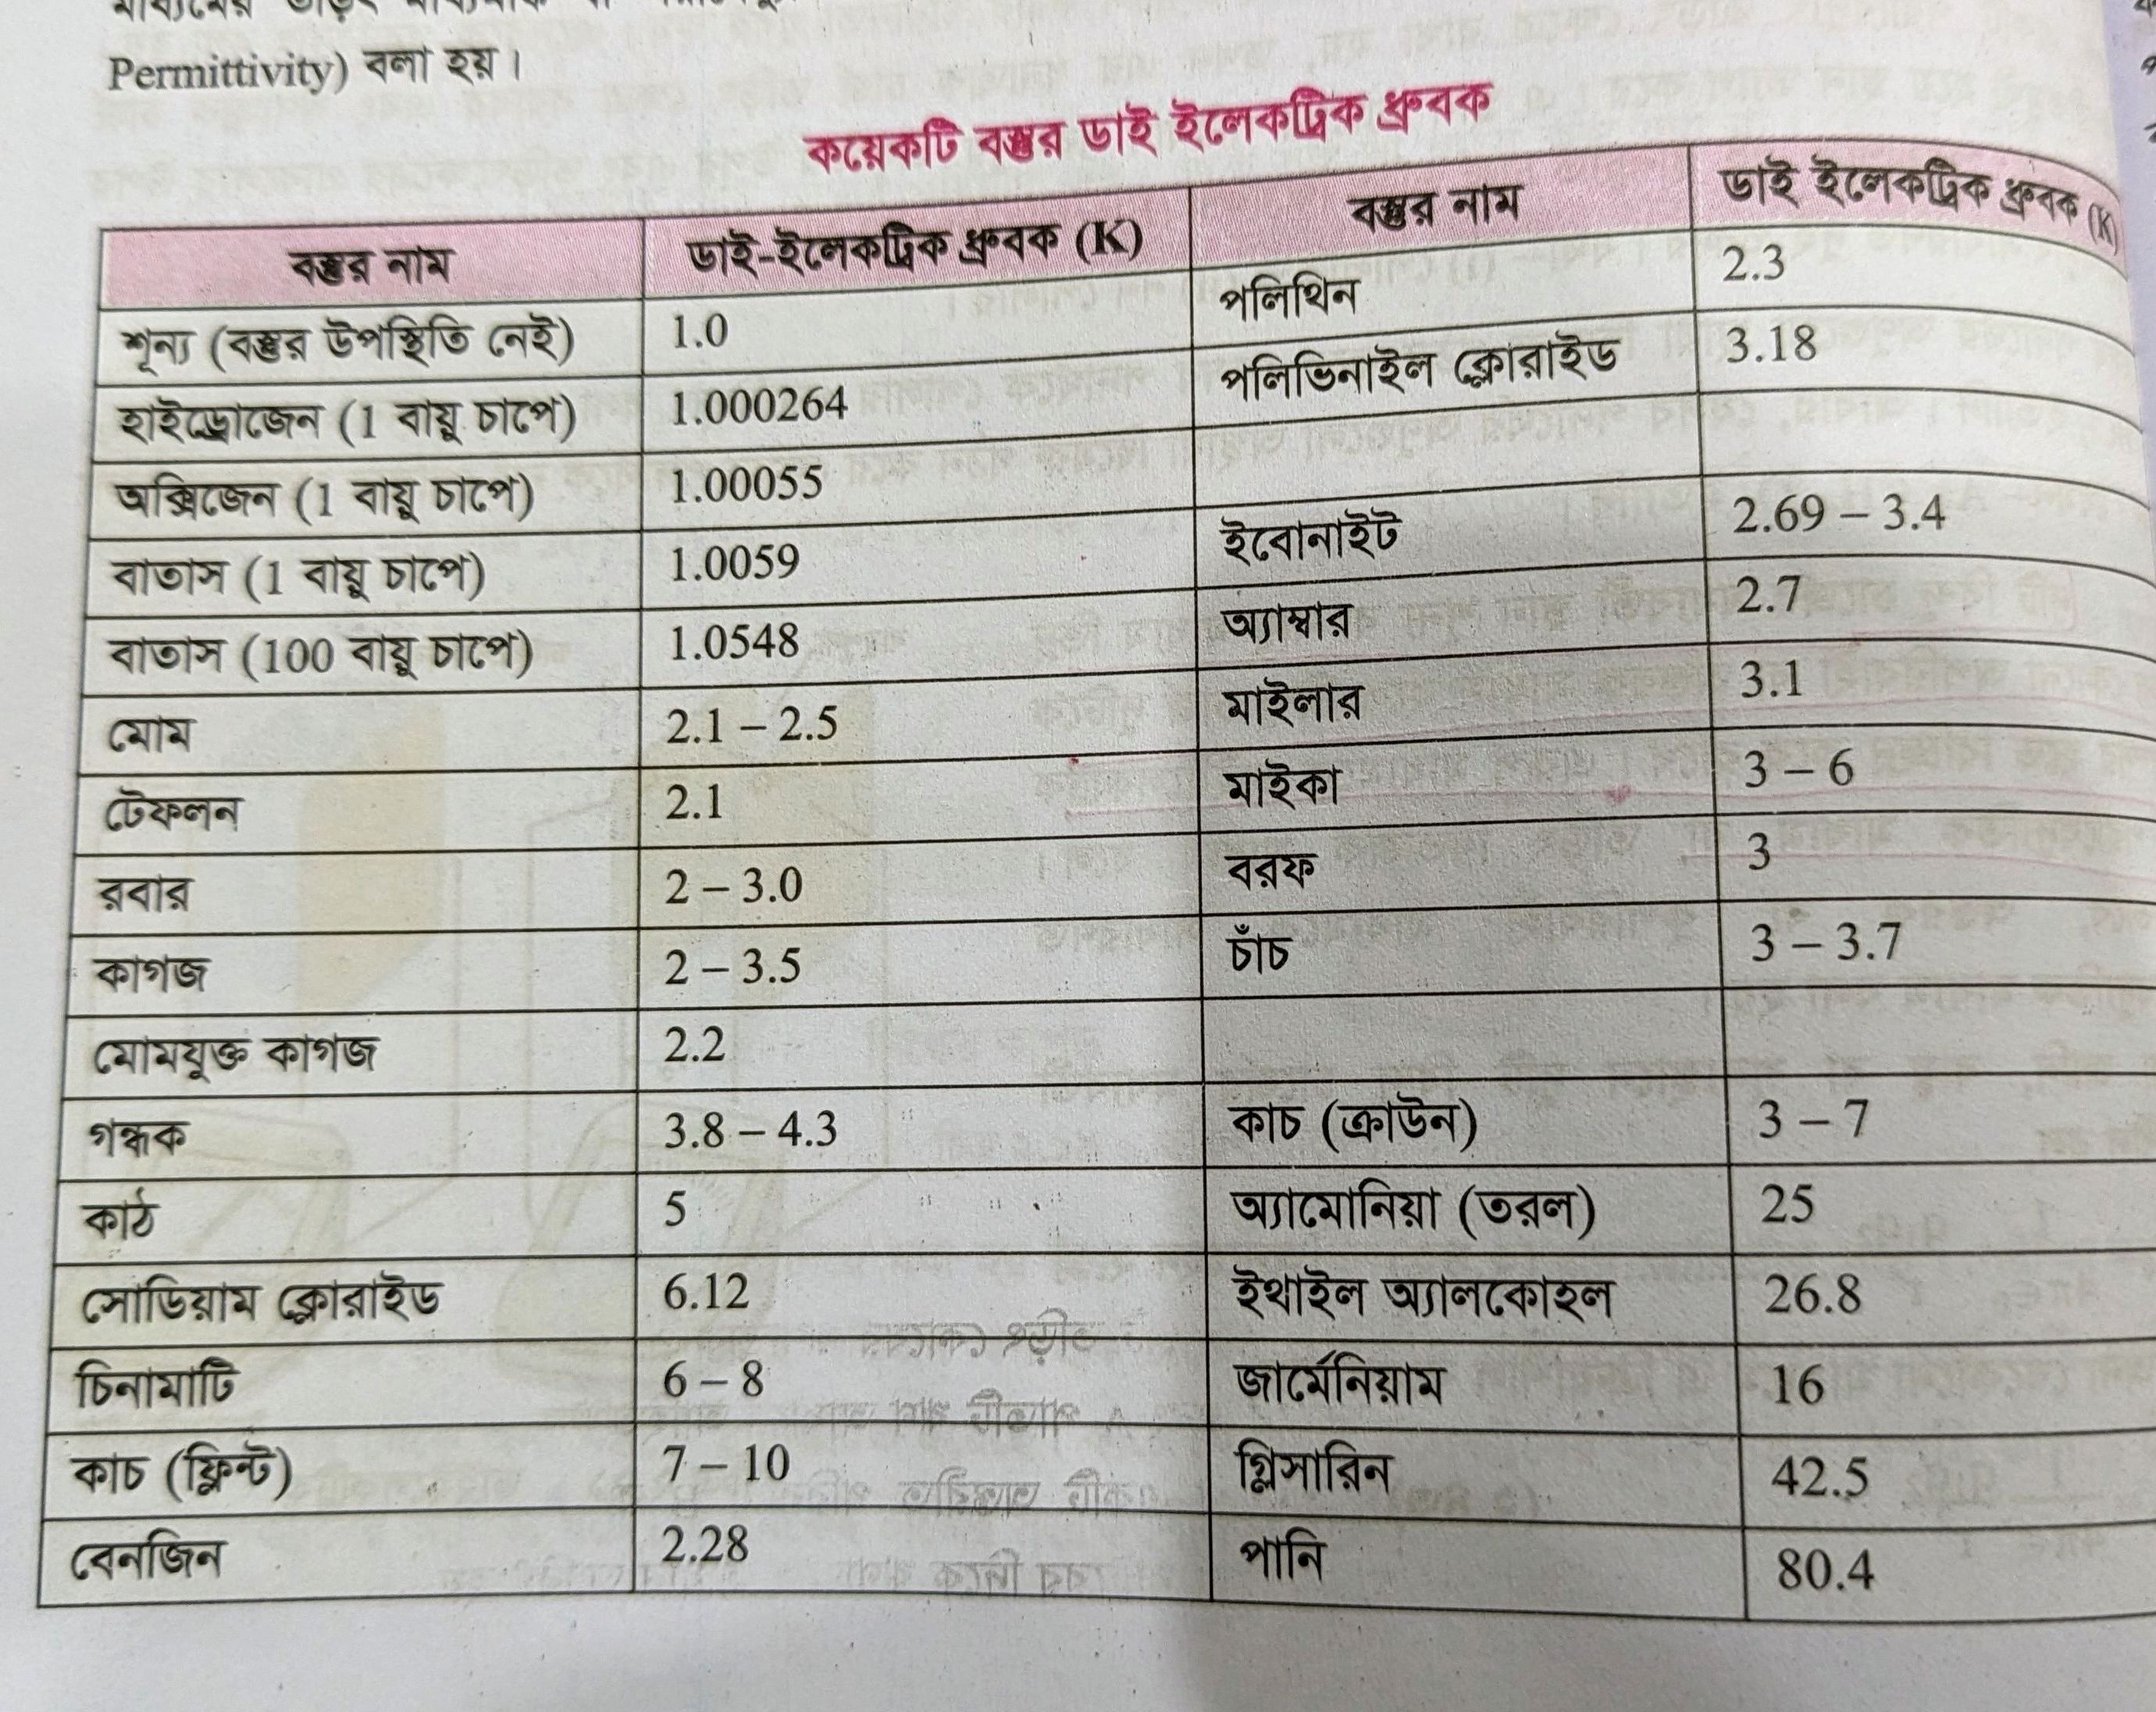 Permittivity) বলা হয়।
কয়েকটি বস্তুর ডাই ইলেকট্রিক ধ্রুবক
বস্তুর নাম ডাই-ইলেকট্রিক ধ্রুবক (K) বস্তুর নাম ডাই ইলেকট্রিক ধ্রুবক (K)
শূন্য (বস্তুর উপস্থিতি নেই) 1.0 পলিথিন 2.3
হাইড্রোজেন (1 বায়ু চাপে) 1.000264 পলিভিনাইল ক্লোরাইড 3.18
অক্সিজেন (1 বায়ু চাপে) 1.00055
বাতাস (1 বায়ু চাপে) 1.0059 ইবোনাইট 2.69 – 3.4
বাতাস (100 বায়ু চাপে) 1.0548 অ্যাম্বার 2.7
মোম 2.1 – 2.5 মাইলার 3.1
টেফলন 2.1 মাইকা 3 – 6
রবার 2 – 3.0 বরফ 3
কাগজ 2 – 3.5 চাঁচ 3 – 3.7
মোমযুক্ত কাগজ 2.2
গন্ধক 3.8 – 4.3 কাচ (ক্রাউন) 3 – 7
কাঠ 5 অ্যামোনিয়া (তরল) 25
সোডিয়াম ক্লোরাইড 6.12 ইথাইল অ্যালকোহল 26.8
চিনামাটি 6 – 8 জার্মেনিয়াম 16
কাচ (ফ্লিন্ট) 7 – 10 গ্লিসারিন 42.5
বেনজিন 2.28 পানি 80.4